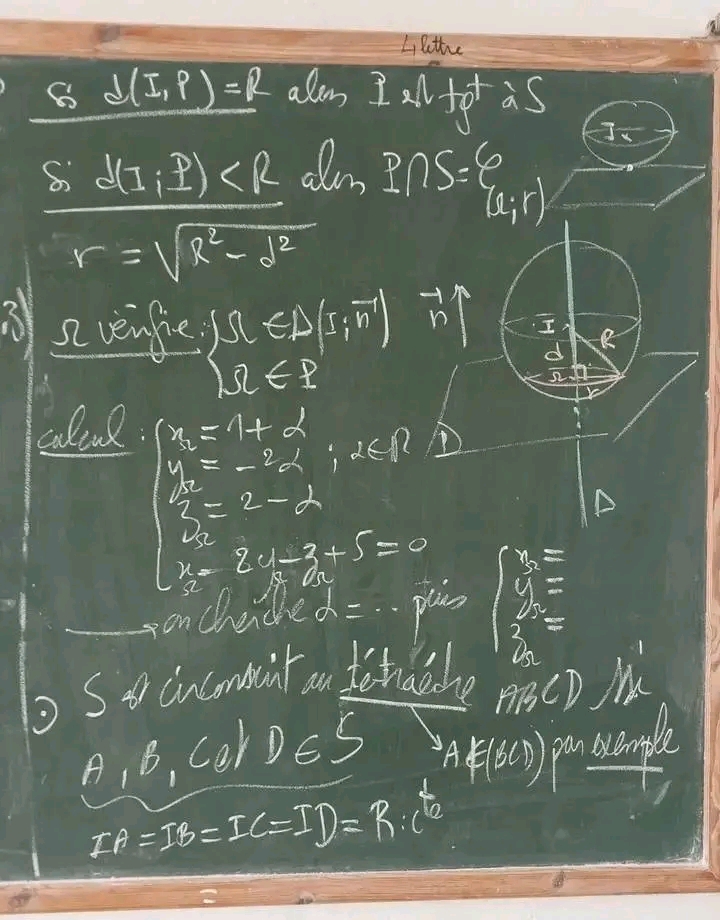 4 lettre
si d(I,P) = R alors P est tgt à S
I
Si d(I;P) < R alors P∩S = 𝒞(Ω;r)
r = √(R² - d²)
3) Ω vérifie: { Ω ∈ Δ(I;n⃗)
Ω ∈ P
n⃗
I
R
d
Ω
r
P
Δ
calcul : { x_Ω = 1 + α
y_Ω = -2α ; α ∈ R
z_Ω = 2 - α
x_Ω - 2y_Ω - z_Ω + 5 = 0
→ on cherche α = ... puis { x_Ω =
y_Ω =
z_Ω =
S est circonscrit au tétraèdre ABCD ssi
A, B, C et D ∈ S
A ∉ (BCD) par exemple
IA = IB = IC = ID = R : cte